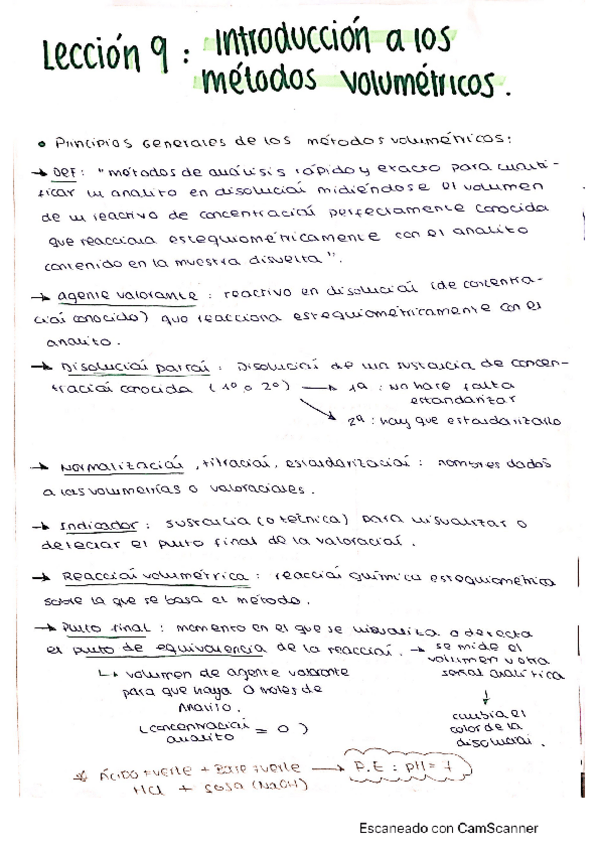 Lección 9 : Introducción a los
métodos volumétricos.
• Principios generales de los métodos volumétricos:
→ DEF: "métodos de análisis rápido y exacto para cuanti-
ficar un analito en disolución midiéndose el volumen
de un reactivo de concentración perfectamente conocida
que reacciona estequiométricamente con el analito
contenido en la muestra disuelta".
→ Agente valorante : reactivo en disolución (de concentra-
ción conocida) que reacciona estequiométricamente con el
analito.
→ Disolución patrón : Disolución de una sustancia de concen-
tración conocida (1º o 2º) → 1ª : No hace falta
estandarizar
→ 2ª : hay que estandarizarlo
→ Normalización, titración, estandarización : nombres dados
a las volumetrías o valoraciones.
→ Indicador : sustancia (o técnica) para visualizar o
detectar el punto final de la valoración.
→ Reacción volumétrica : reacción química estequiométrica
sobre la que se basa el método.
→ Punto final : momento en el que se visualiza o detecta
el punto de equivalencia de la reacción. → se mide el
volumen u otra
señal analítica
↓
cambia el
color de la
disolución.
↳ volumen de agente valorante
para que haya 0 moles de
analito.
(concentración analito = 0)
* Ácido fuerte + Base fuerte → P.E : pH = 7
HCl + sosa (NaOH)
Escaneado con CamScanner